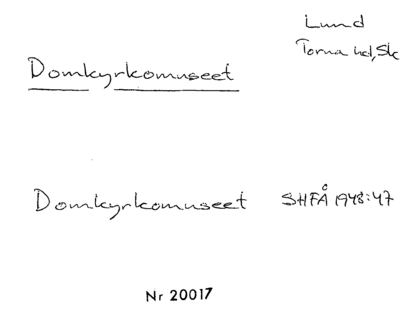 Lund
Torna hd, Sk
Domkyrkomuseet
Domkyrkomuseet SHFÅ 1948:47
Nr 20017